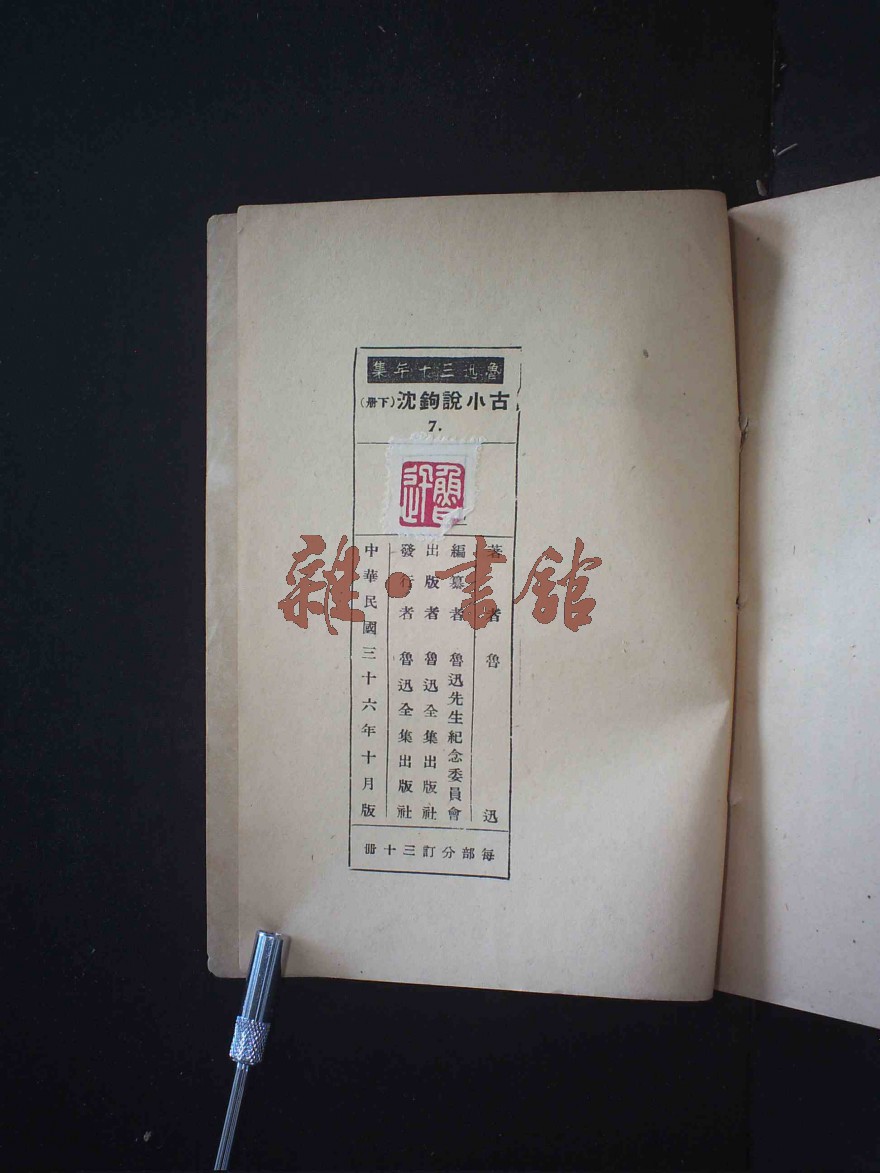 魯迅三十年集
古小說鉤沈（下册）
7.
魯迅
著者 魯迅
編纂者 魯迅先生紀念委員會
出版者 魯迅全集出版社
發行者 魯迅全集出版社
中華民國三十六年十月版
每部分訂三十冊
雜·書館